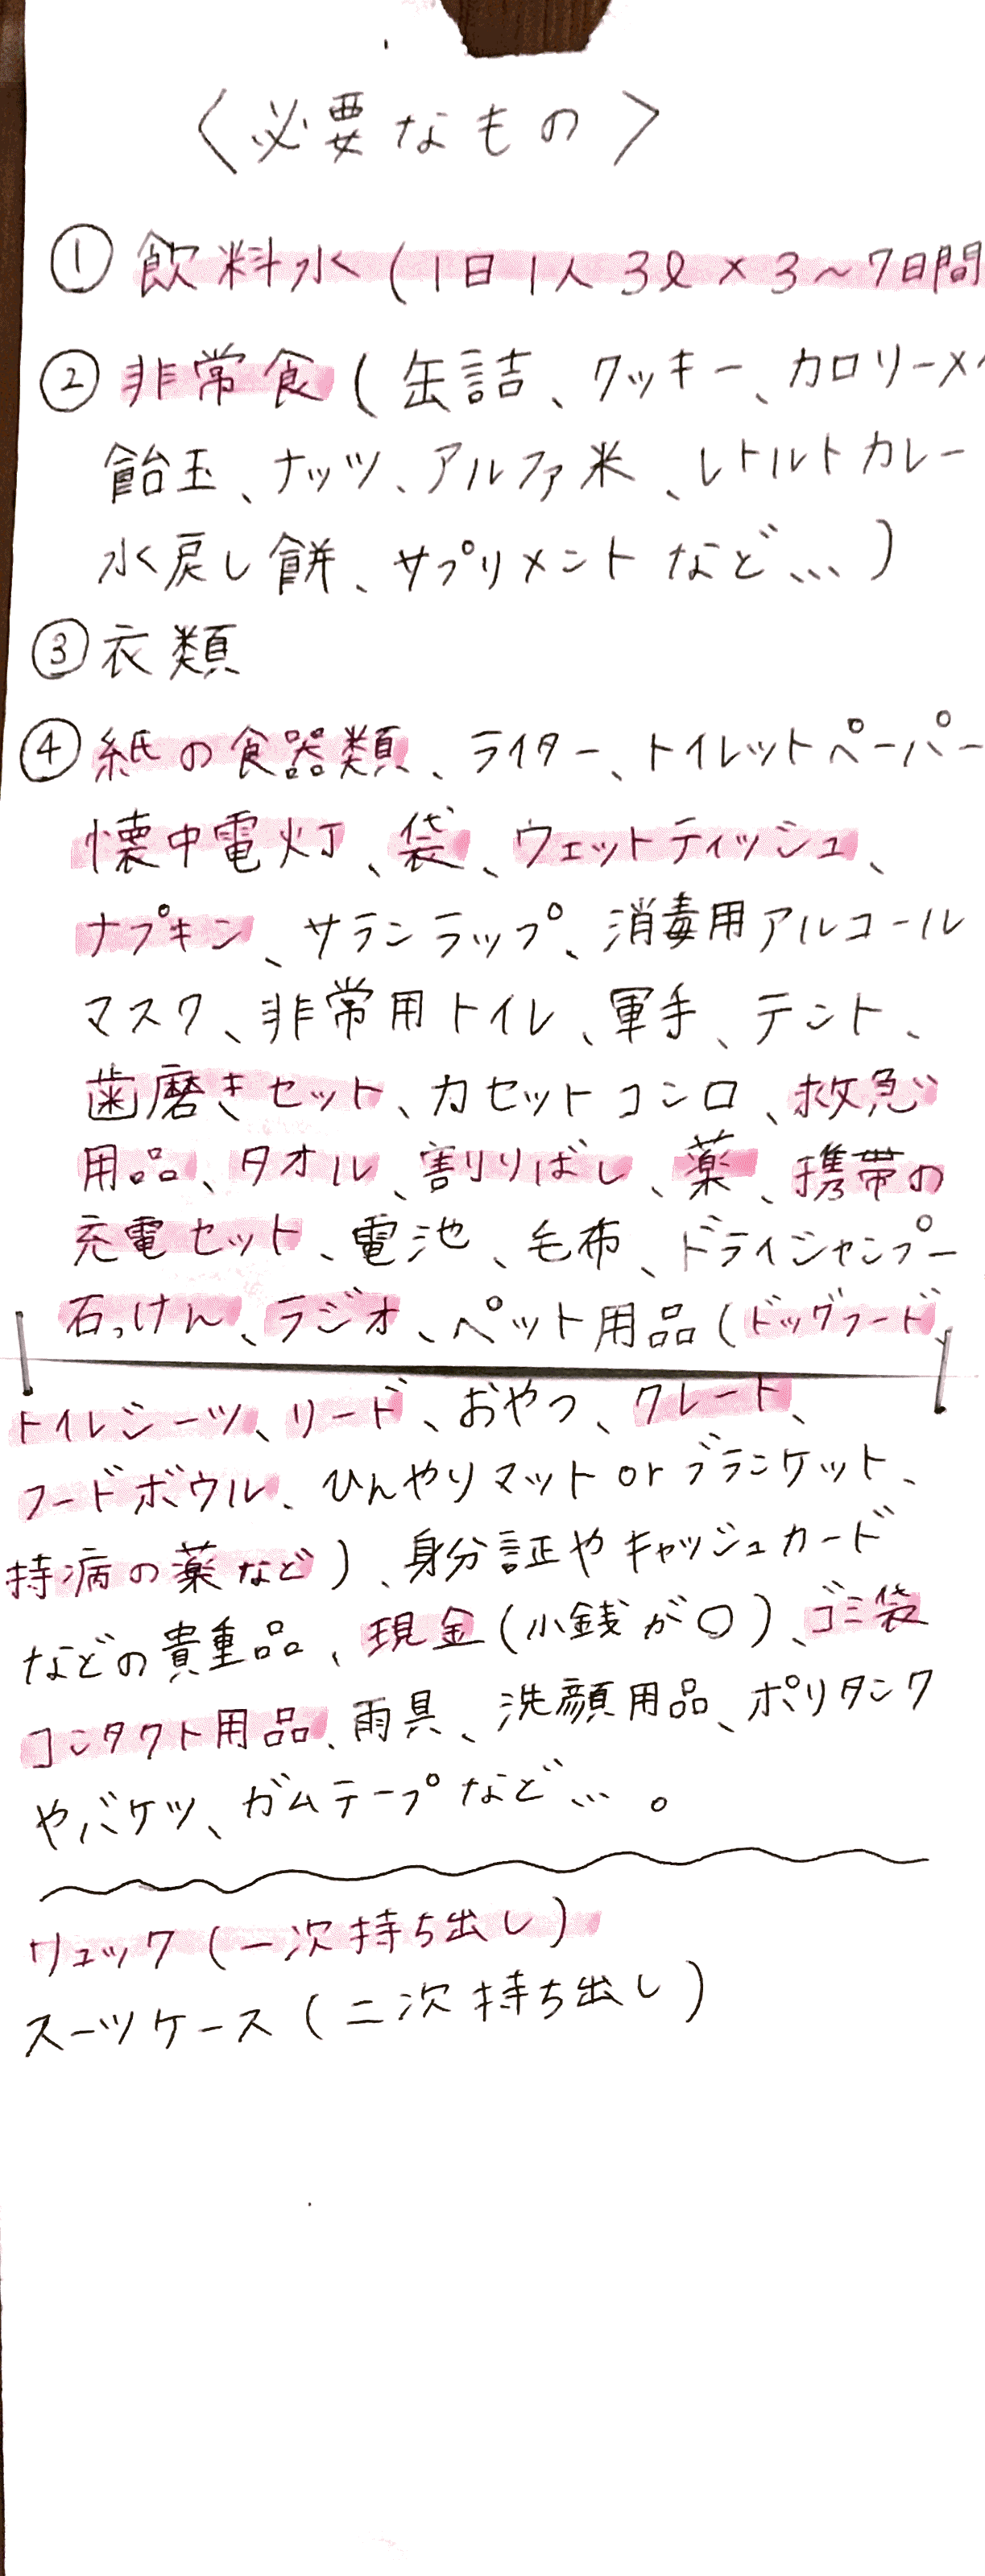 〈必要なもの〉
① 飲料水(1日1人3ℓ×3～7日間
② 非常食(缶詰、クッキー、カロリーメ
飴玉、ナッツ、アルファ米、レトルトカレー
水戻し餅、サプリメントなど…)
③ 衣類
④ 紙の食器類、ライター、トイレットペーパー
懐中電灯、袋、ウェットティッシュ、
ナプキン、サランラップ、消毒用アルコール
マスク、非常用トイレ、軍手、テント、
歯磨きセット、カセットコンロ、救急
用品、タオル、割りばし、薬、携帯の
充電セット、電池、毛布、ドライシャンプー
石っけん、ラジオ、ペット用品(ドッグフード、
トイレシーツ、リード、おやつ、クレート、
フードボウル、ひんやりマットorブランケット、
持病の薬など)、身分証やキャッシュカード
などの貴重品、現金(小銭が〇)、ゴミ袋
コンタクト用品、雨具、洗顔用品、ポリタンク
やバケツ、ガムテープなど…。
リュック(一次持ち出し)
スーツケース(二次持ち出し)